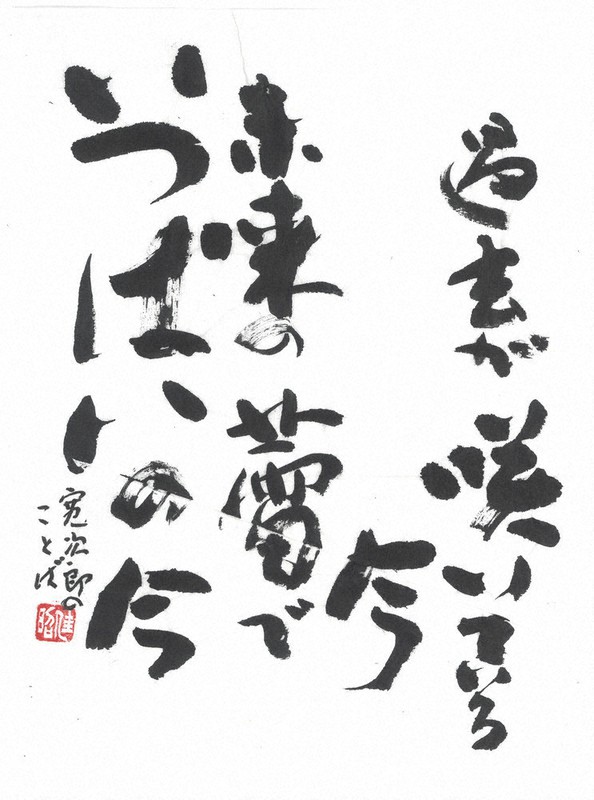 過去が咲いている
今
未来の蕾で
いっぱいの今
寛次郎の
ことば